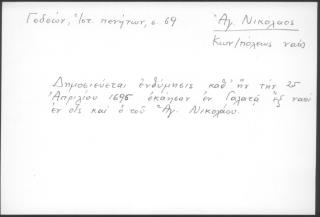 Γεδεών, Ἱστ. πενήτων, σ. 69
Ἁγ. Νικόλαος
Κων/πόλεως ναός
Δημοσιεύεται ἐνθύμησις καθ' ἣν τὴν 25
Ἀπριλίου 1696 ἐκάησαν ἐν Γαλατᾷ ἓξ ναοί
ἐν οἷς καὶ ὁ τοῦ Ἁγ. Νικολάου.